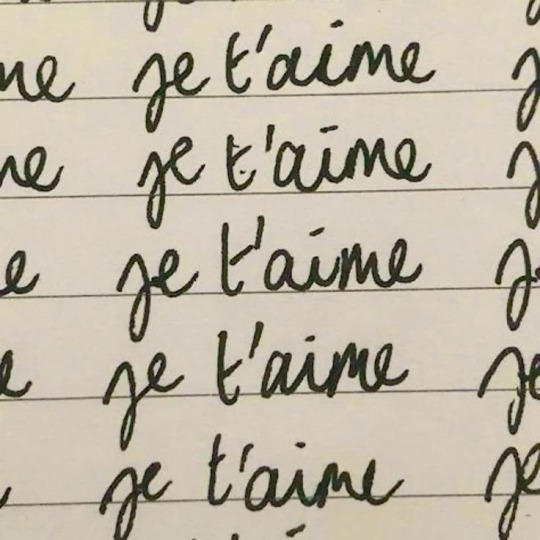 je t'aime
je t'aime
je t'aime
je t'aime
je t'aime